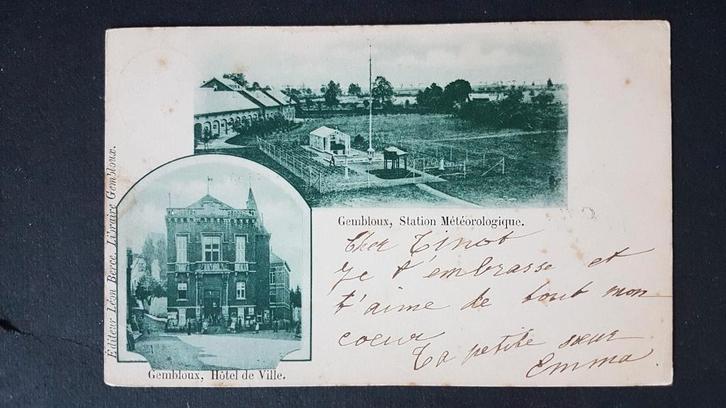 Editeur Léon Berce, Libraire Gembloux.
Gembloux, Station Météorologique.
Cher Tinot
Je t'embrasse et
t'aime de tout mon
coeur
Ta petite sœur
Emma
Gembloux, Hôtel de Ville.